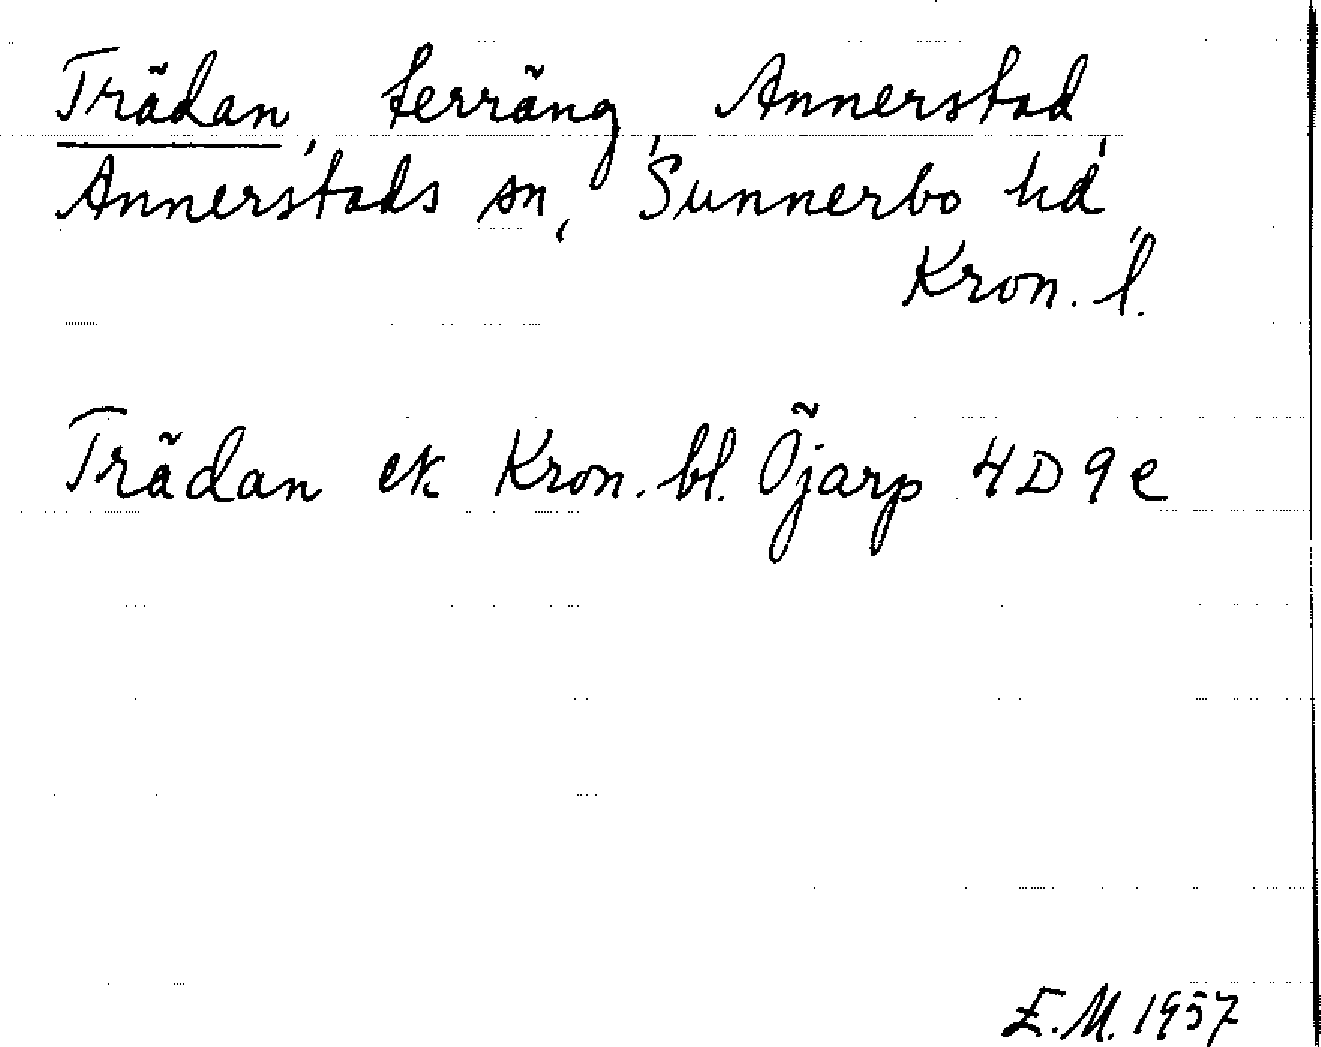 Trädan, terräng, Annerstad,
Annerstads sn, Sunnerbo hd,
Kron. l.
Trädan ek Kron. bl. Öjarp 4D9e
E.M. 1957